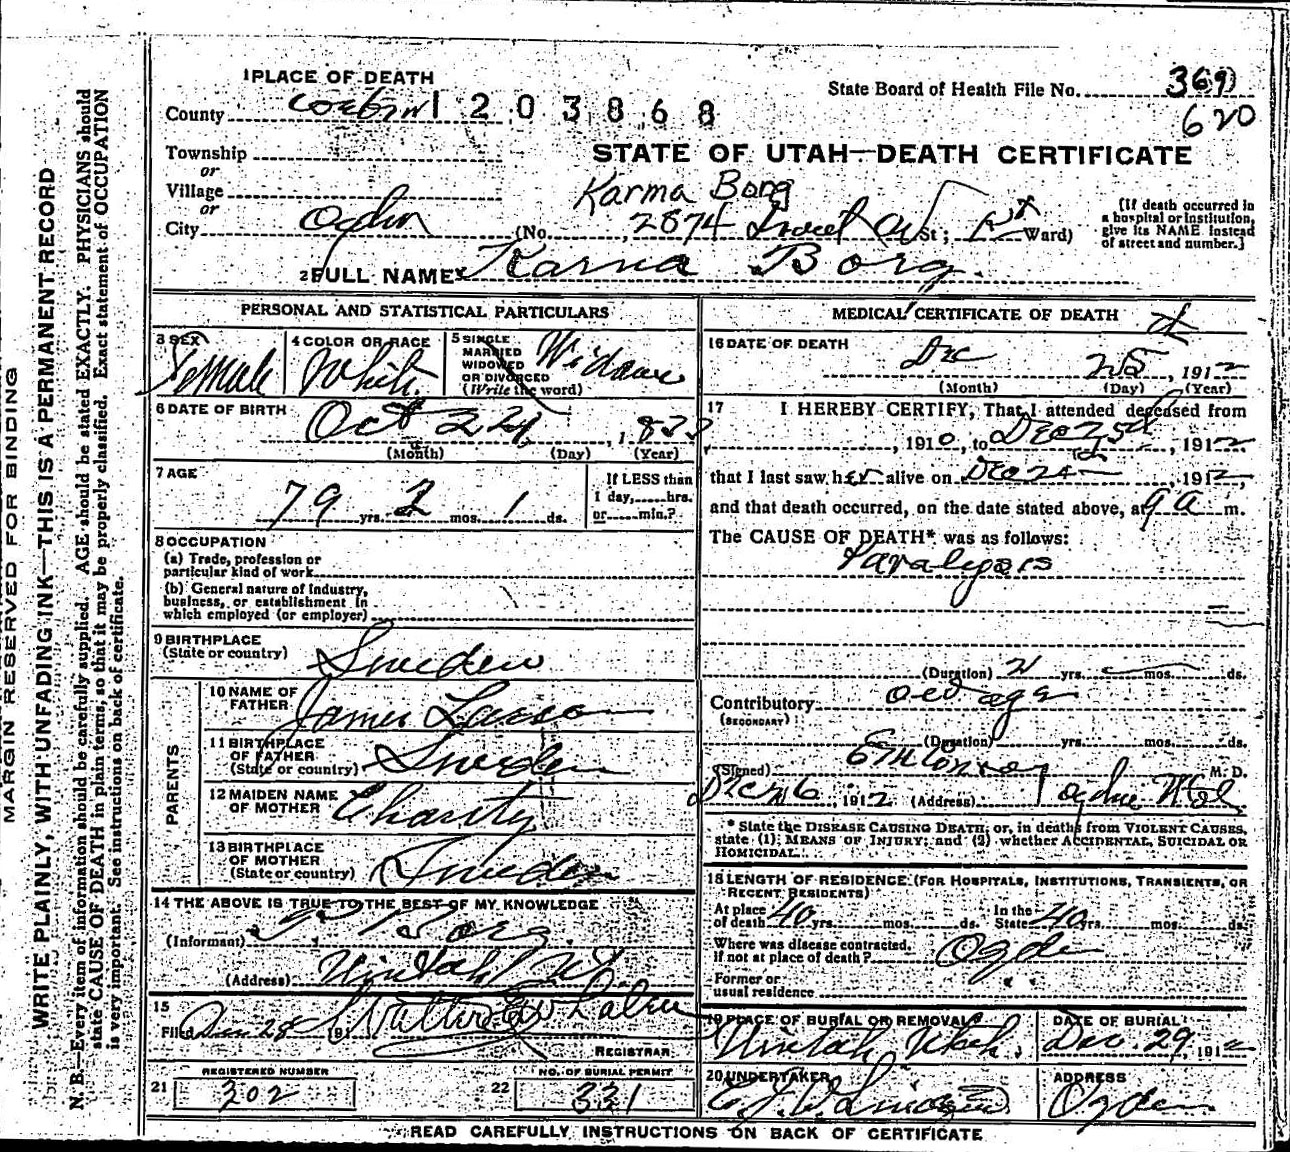 1 PLACE OF DEATH
State Board of Health File No. 369
620
County 1203868
STATE OF UTAH—DEATH CERTIFICATE
Township
or
Village
Karma Borg
or
City Ogden (No. 2874 Av St; Ward)
(If death occurred in
a hospital or institution,
give its NAME instead
of street and number.]
2 FULL NAME Karna Borg.
PERSONAL AND STATISTICAL PARTICULARS
3 SEX Female
4 COLOR OR RACE White.
5 SINGLE
MARRIED
WIDOWED
OR DIVORCED
(Write the word)
Widow
6 DATE OF BIRTH
Oct 24, 1833
(Month) (Day) (Year)
7 AGE
79 yrs. 2 mos. 1 ds.
If LESS than
1 day, hrs.
or min.?
8 OCCUPATION
(a) Trade, profession or
particular kind of work
(b) General nature of industry,
business, or establishment in
which employed (or employer)
9 BIRTHPLACE
(State or country) Sweden
PARENTS
10 NAME OF
FATHER James
11 BIRTHPLACE
OF FATHER
(State or country) Sweden
12 MAIDEN NAME
OF MOTHER Charity
13 BIRTHPLACE
OF MOTHER
(State or country) Sweden
14 THE ABOVE IS TRUE TO THE BEST OF MY KNOWLEDGE
(Informant) Borg.
(Address) Uintah Ut
15
Filed Dec 28
REGISTRAR
REGISTERED NUMBER
21 302
NO. OF BURIAL PERMIT
22 331
MEDICAL CERTIFICATE OF DEATH
16 DATE OF DEATH
Dec 25, 1912
(Month) (Day) (Year)
17 I HEREBY CERTIFY, That I attended deceased from
, 1910, to Dec 25th, 1912
that I last saw her alive on Dec 24th, 1912,
and that death occurred, on the date stated above, at 9 a m.
The CAUSE OF DEATH* was as follows:
Paralysis
(Duration) 2 yrs. mos. ds.
Contributory old age
(SECONDARY)
(Duration) yrs. mos. ds.
(Signed) E M Conroy M. D.
Dec 26, 1912 (Address) Ogden Utah
* State the DISEASE CAUSING DEATH; or, in deaths from VIOLENT CAUSES,
state (1) MEANS OF INJURY; and (2) whether ACCIDENTAL, SUICIDAL OR
HOMICIDAL.
18 LENGTH OF RESIDENCE (FOR HOSPITALS, INSTITUTIONS, TRANSIENTS, OR
RECENT RESIDENTS)
At place
of death 40 yrs. mos. ds.
In the
State 40 yrs. mos. ds.
Where was disease contracted.
If not at place of death? Ogden
Former or
usual residence
19 PLACE OF BURIAL OR REMOVAL
Uintah Utah.
DATE OF BURIAL
Dec. 29, 1912
20 UNDERTAKER
ADDRESS
Ogden
READ CAREFULLY INSTRUCTIONS ON BACK OF CERTIFICATE
MARGIN RESERVED FOR BINDING
WRITE PLAINLY, WITH UNFADING INK—THIS IS A PERMANENT RECORD
N. B.—Every item of information should be carefully supplied. AGE should be stated EXACTLY. PHYSICIANS should
state CAUSE OF DEATH in plain terms, so that it may be properly classified. Exact statement of OCCUPATION
is very important. See instructions on back of certificate.